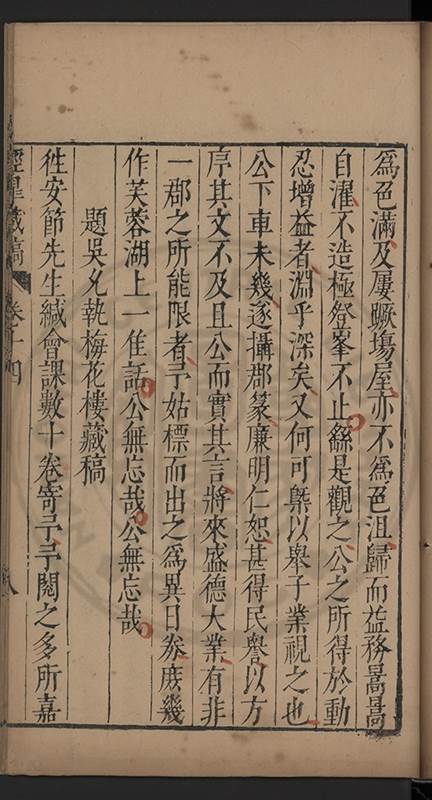 為色滿及屢蹶塲屋亦不爲色沮歸而益務暠暠
自濯不造極登峯不止繇是觀之公之所得於動
忍增益者淵乎深矣又何可槩以舉子業視之也
公下車未幾遂攝郡篆廉明仁恕甚得民譽以方
序其文不及且公而實其言將來盛德大業有非
一郡之所能限者予姑標而出之為異日券庶幾
作芙蓉湖上一佳話公無忘哉公無忘哉
題吳允執梅花樓藏稿
徃安節先生緘會課數十卷寄予予閱之多所嘉
涇皐藏稿
卷十四
八